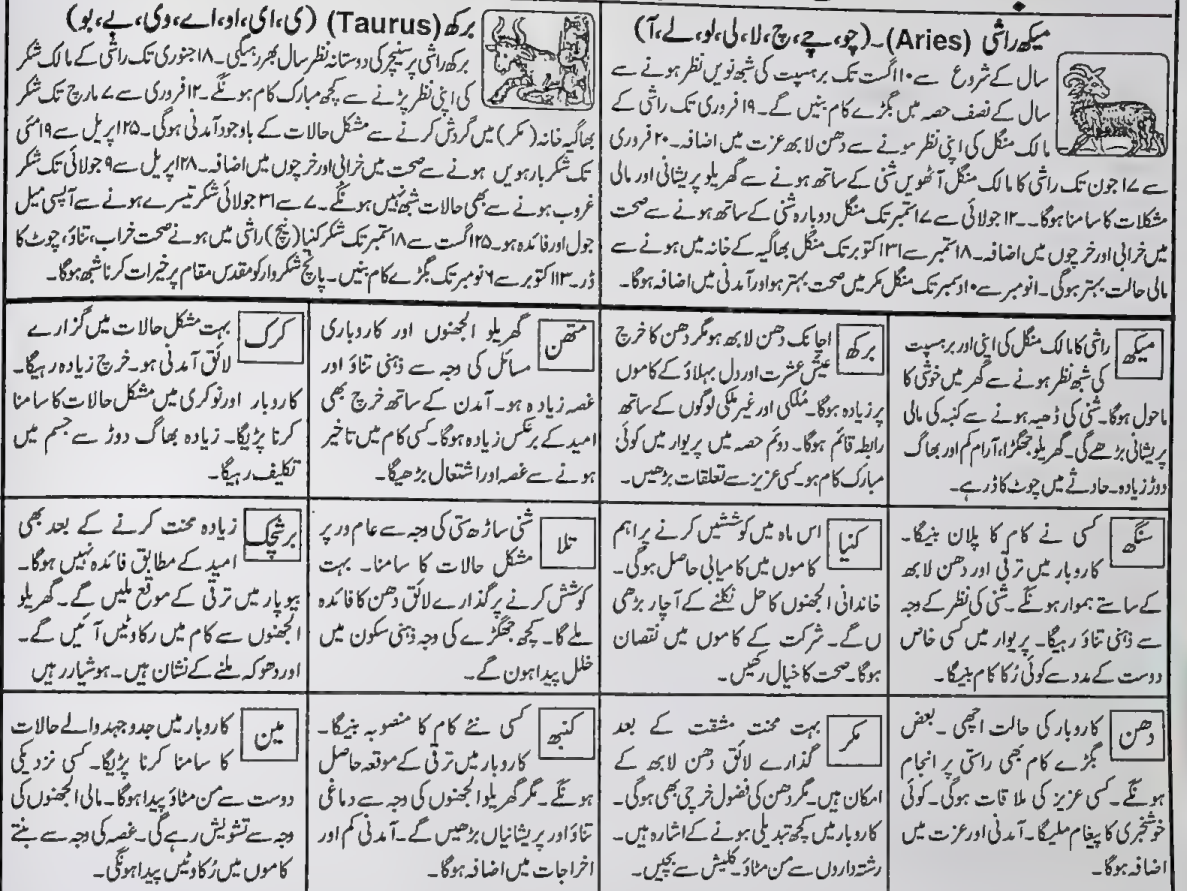 میکھ راشی (Aries)۔(چو، چے، چ، لا، لی، لو، لے، آ)
سال کے شروع سے ۱۰اگست تک برہسپت کی شبھ نویں نظر ہونے سے
سال کے نصف حصہ میں بگڑے کام بنیں گے۔ ۱۹ فروری تک راشی کے
مالک منگل کی اپنی نظر ہونے سے دھن لابھ عزت میں اضافہ۔ ۲۰ فروری
سے ۱۷ جون تک راشی کا مالک منگل آٹھویں شنی کے ساتھ ہونے سے گھریلو پریشانی اور مالی
مشکلات کا سامنا ہوگا۔۔ ۱۲ جولائی سے ۱۷ ستمبر تک منگل دوبارہ شنی کے ساتھ ہونے سے صحت
میں خرابی اور خرچوں میں اضافہ۔ ۱۸ستمبر سے ۳۱اکتوبر تک منگل بھاگیہ کے خانہ میں ہونے سے
مالی حالت بہتر ہوگی۔ ۱نومبر سے ۱۰دسمبر تک منگل مکر میں صحت بہتر ہو اور آمدنی میں اضافہ ہوگا۔
برکھ (Taurus) (ی، ای، او، اے، وی، بے، بو)
برکھ راشی پر سنیچر کی دوستانہ نظر سال بھر رہیگی۔ ۱۸ جنوری تک راشی کے مالک شکر
کی اپنی نظر پڑنے سے کچھ مبارک کام ہونگے۔ ۱۲ فروری سے ۷ مارچ تک شکر
بھاگیہ خانہ (مکر) میں گردش کرنے سے مشکل حالات کے باوجود آمدنی ہوگی۔ ۲۵اپریل سے ۱۹مئی
تک شکر بارہویں ہونے سے صحت میں خرابی اور خرچوں میں اضافہ۔ ۲۸اپریل سے ۹ جولائی تک شکر
غروب ہونے سے بھی حالات شبھ نہیں ہونگے۔ ۷ سے ۳۱ جولائی شکر تیسرے ہونے سے آپسی میل
جول اور فائدہ ہو۔ ۲۵اگست سے ۱۸ ستمبر تک شکر کنیا (نیچ) راشی میں ہونے صحت خراب، تناؤ، چوٹ کا
ڈر۔ ۱۳اکتوبر سے ۶ نومبر تک بگڑے کام بنیں۔ پانچ شکروار کو مقدس مقام پر خیرات کرنا شبھ ہوگا۔
میکھ
راشی کا مالک منگل کی اپنی اور برہسپت
کی شبھ نظر ہونے سے گھر میں خوشی کا
ماحول ہوگا۔ شنی کی ڈھیہ ہونے سے کنبہ کی مالی
پریشانی بڑھے گی۔ گھریلو جھگڑا، آرام کم اور بھاگ
دوڑ زیادہ۔ حادثے میں چوٹ کا ڈر ہے۔
برکھ
اچانک دھن لابھ ہو مگر دھن کا خرچ
عیش عشرت اور دل بہلاؤ کے کاموں
پر زیادہ ہوگا۔ مُلکی اور غیر ملکی لوگوں کے ساتھ
رابطہ قائم ہوگا۔ دوئم حصہ میں پریوار میں کوئی
مبارک کام ہو۔ کسی عزیز سے تعلقات بڑھیں۔
متھن
گھریلو الجھنوں اور کاروباری
مسائل کی وجہ سے ذہنی تناؤ اور
غصہ زیادہ ہو۔ آمدن کے ساتھ خرچ بھی
امید کے برعکس زیادہ ہوگا۔ کسی کام میں تاخیر
ہونے سے غصہ اور اشتعال بڑھیگا۔
کرک
بہت مشکل حالات میں گزارے
لائق آمدنی ہو۔ خرچ زیادہ رہیگا۔
کاروبار اور نوکری میں مشکل حالات کا سامنا
کرنا پڑیگا۔ زیادہ بھاگ دوڑ سے جسم میں
تکلیف رہیگا۔
سنگھ
کسی نے کام کا پلان بنیگا۔
کاروبار میں ترقی اور دھن لابھ
کے راستے ہموار ہونگے۔ شنی کی نظر کے وجہ
سے ذہنی تناؤ رہیگا۔ پریوار میں کسی خاص
دوست کے مدد سے کوئی رُکا کام بنیگا۔
کنیا
اس ماہ میں کوششیں کرنے پر اہم
کاموں میں کامیابی حاصل ہوگی۔
خاندانی الجھنوں کا حل نکلنے کے آچار بڑھی
ں گے۔ شرکت کے کاموں میں نقصان
ہوگا۔ صحت کا خیال رکھیں۔
تلا
شنی ساڑھ ستی کی وجہ سے عام ور پر
مشکل حالات کا سامنا۔ بہت
کوشش کرنے پر گذارے لائق دھن کا فائدہ
ملے گا۔ کچھ جھگڑے کی وجہ ذہنی سکون میں
خلل پیدا ہون گے۔
برشچک
زیادہ محنت کرنے کے بعد بھی
امید کے مطابق فائدہ نہیں ہوگا۔
بیوپار میں ترقی کے موقع ملیں گے۔ گھریلو
الجھنوں سے کام میں رکاوٹیں آئیں گے۔
اور دھوکہ ملنے کے نشان ہیں۔ ہوشیار رہیں
دھن
کاروبار کی حالت اچھی ۔ بعض
بگڑے کام بھی راستی پر انجام
ہونگے۔ کسی عزیز کی ملاقات ہوگی۔ کوئی
خوشخبری کا پیغام ملیگا۔ آمدنی اور عزت میں
اضافہ ہوگا۔
مکر
بہت محنت مشقت کے بعد
گذارے لائق دھن لابھ کے
امکان ہیں۔ مگر دھن کی فضول خرچی بھی ہوگی۔
کاروبار میں کچھ تبدیلی ہونے کے اشارہ ہیں۔
رشتہ داروں سے من مٹاؤ۔ کلیش سے بچیں۔
کنبھ
کسی نئے کام کا منصوبہ بنیگا۔
کاروبار میں ترقی کے موقعہ حاصل
ہونگے۔ مگر گھریلو الجھنوں کی وجہ سے دماغی
تناؤ اور پریشانیاں بڑھیں گے۔ آمدنی کم اور
اخراجات میں اضافہ ہوگا۔
مین
کاروبار میں جدوجہد والے حالات
کا سامنا کرنا پڑیگا۔ کسی نزدیکی
دوست سے من مٹاؤ پیدا ہوگا۔ مالی الجھنوں کی
وجہ سے تشویش رہے گی۔ غصہ کی وجہ سے بنتے
کاموں میں رُکاوٹیں پیدا ہونگی۔